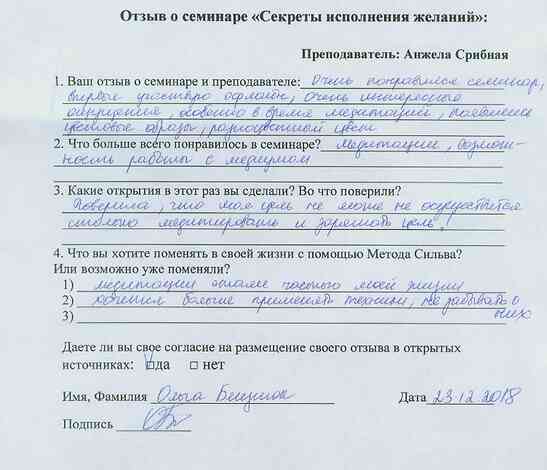 Отзыв о семинаре «Секреты исполнения желаний»:
Преподаватель: Анжела Срибная
1. Ваш отзыв о семинаре и преподавателе: Очень понравился семинар,
впервые участвую офлайн, очень интересные
ощущения, особенно в время медитации, появились
цветовые образы,
2. Что больше всего понравилось в семинаре? Медитации, возмож-
ность работы с медиумом
3. Какие открытия в этот раз вы сделали? Во что поверили?
Поверила, что моя цель не може не осуществится
стабильно медитировать и заряжать цель!
4. Что вы хотите поменять в своей жизни с помощью Метода Сильва?
Или возможно уже поменяли?
1) медитации стали частью моей жизни
2) хочется больше применять техники, не забывать о
3) них
Даете ли вы свое согласие на размещение своего отзыва в открытых
источниках: да нет
Имя, Фамилия Ольга Дата 23.12.2018
Подпись